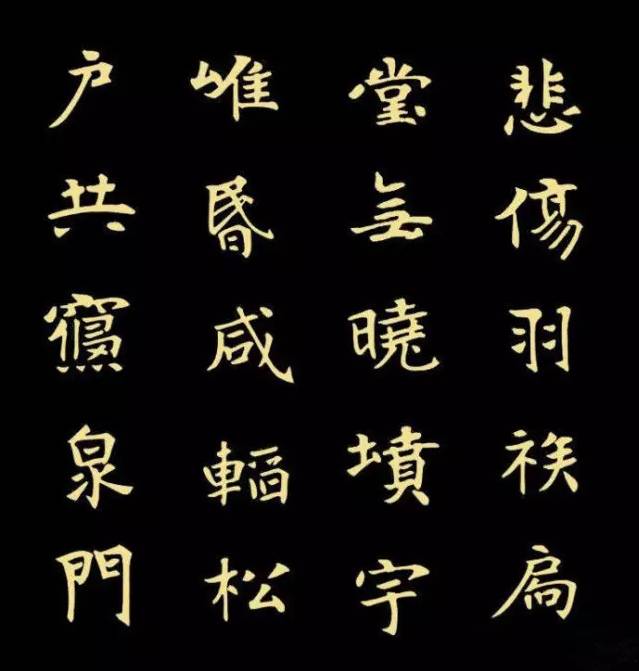 悲傷羽族扃
堂無曉墳宇
唯昏咸轁松
户共寢泉門